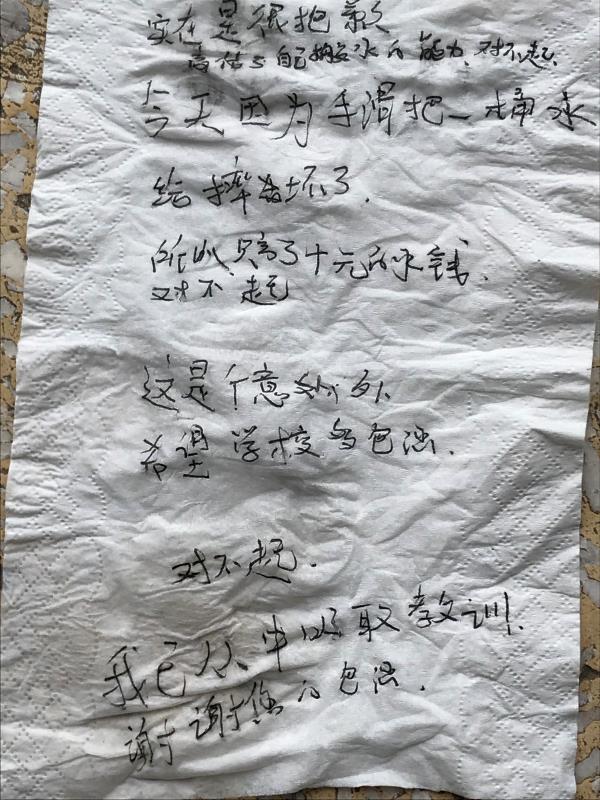 实在是很抱歉
高估了自己搬水的能力,对不起.
今天因为手滑把一桶水
给摔坏了.
所以只高了十元的水钱.
对不起
这是个意外.
希望学校多包涵.
对不起.
我已从中吸取教训.
谢谢您的包涵.